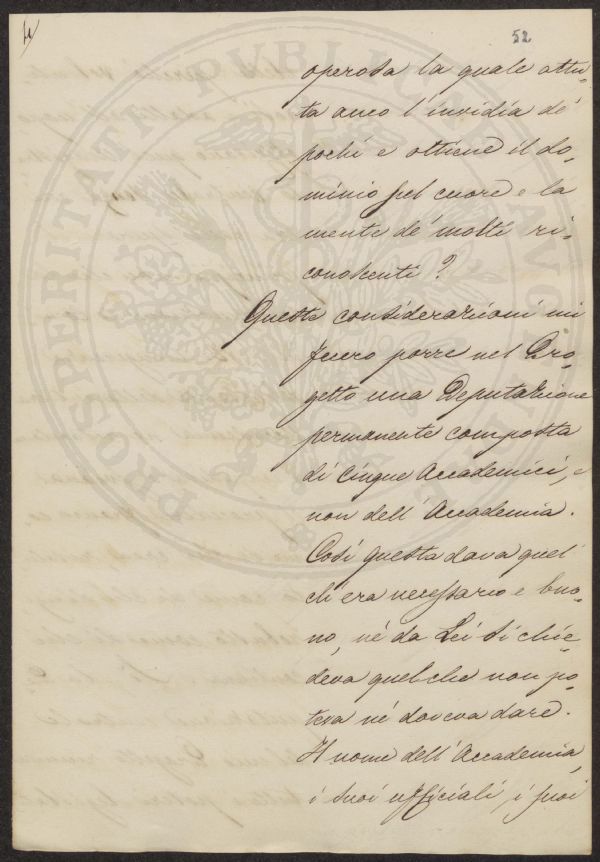 52
operosa la quale attu-
ta anco l'invidia de'
pochi e ottiene il do-
minio pel cuore e la
mente de' molti ri-
conoscenti?
Queste considerazioni mi
fecero porre nel Pro-
getto una Deputazione
permanente composta
di cinque Accademici, e
non dell'Accademia.
Così questa dava quel
ch'era necessario e buo-
no, nè da Lei si chie-
deva quel che non po-
teva nè doveva dare.
Il nome dell'Accademia,
i suoi ufficiali, i suoi
PROSPERITATI PUBLICAE AUGENDAE